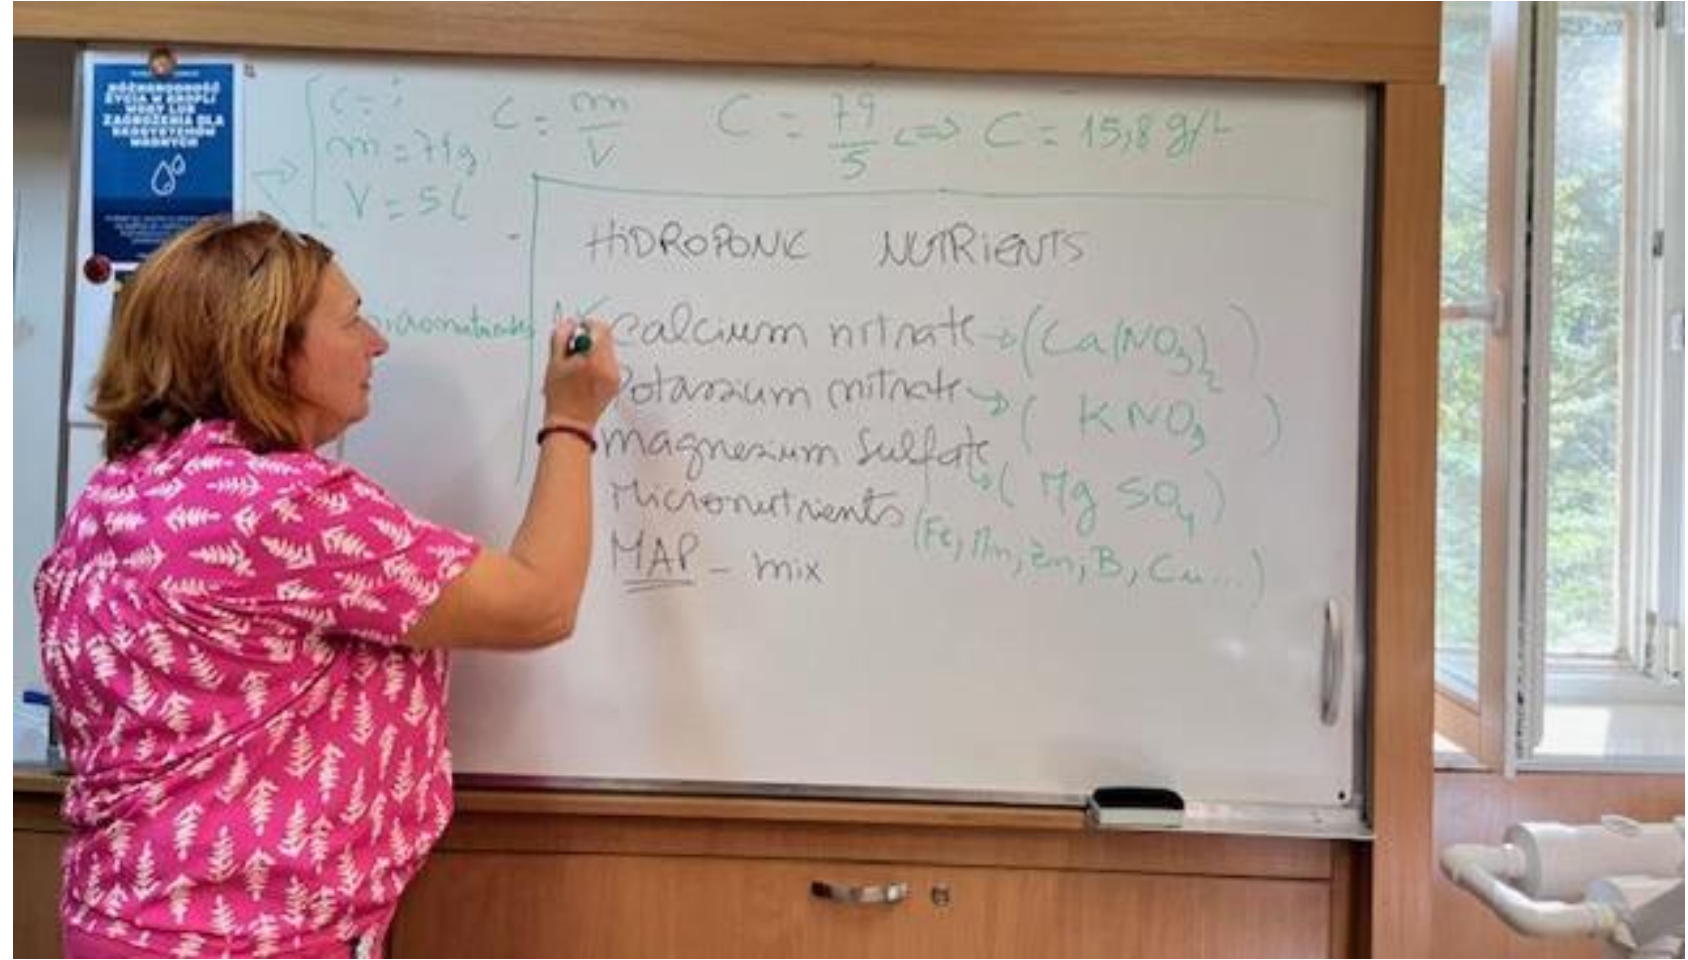 RÓŻNORODNOŚĆ
ŻYCIA W KROPLI
WODY LUB
ZAGROŻENIA DLA
EKOSYSTEMÓW
WODNYCH
C = ?
m = 79g
V = 5l
C = m/V
C = 79/5 <=> C = 15,8 g/L
HiDROPONIC NUTRiENTS
Calcium nitrate → (Ca(NO3)2)
Potassium nitrate → (KNO3)
Magnesium Sulfate → (MgSO4)
Micronutrients (Fe, Mn, Zn, B, Cu...)
MAP - mix